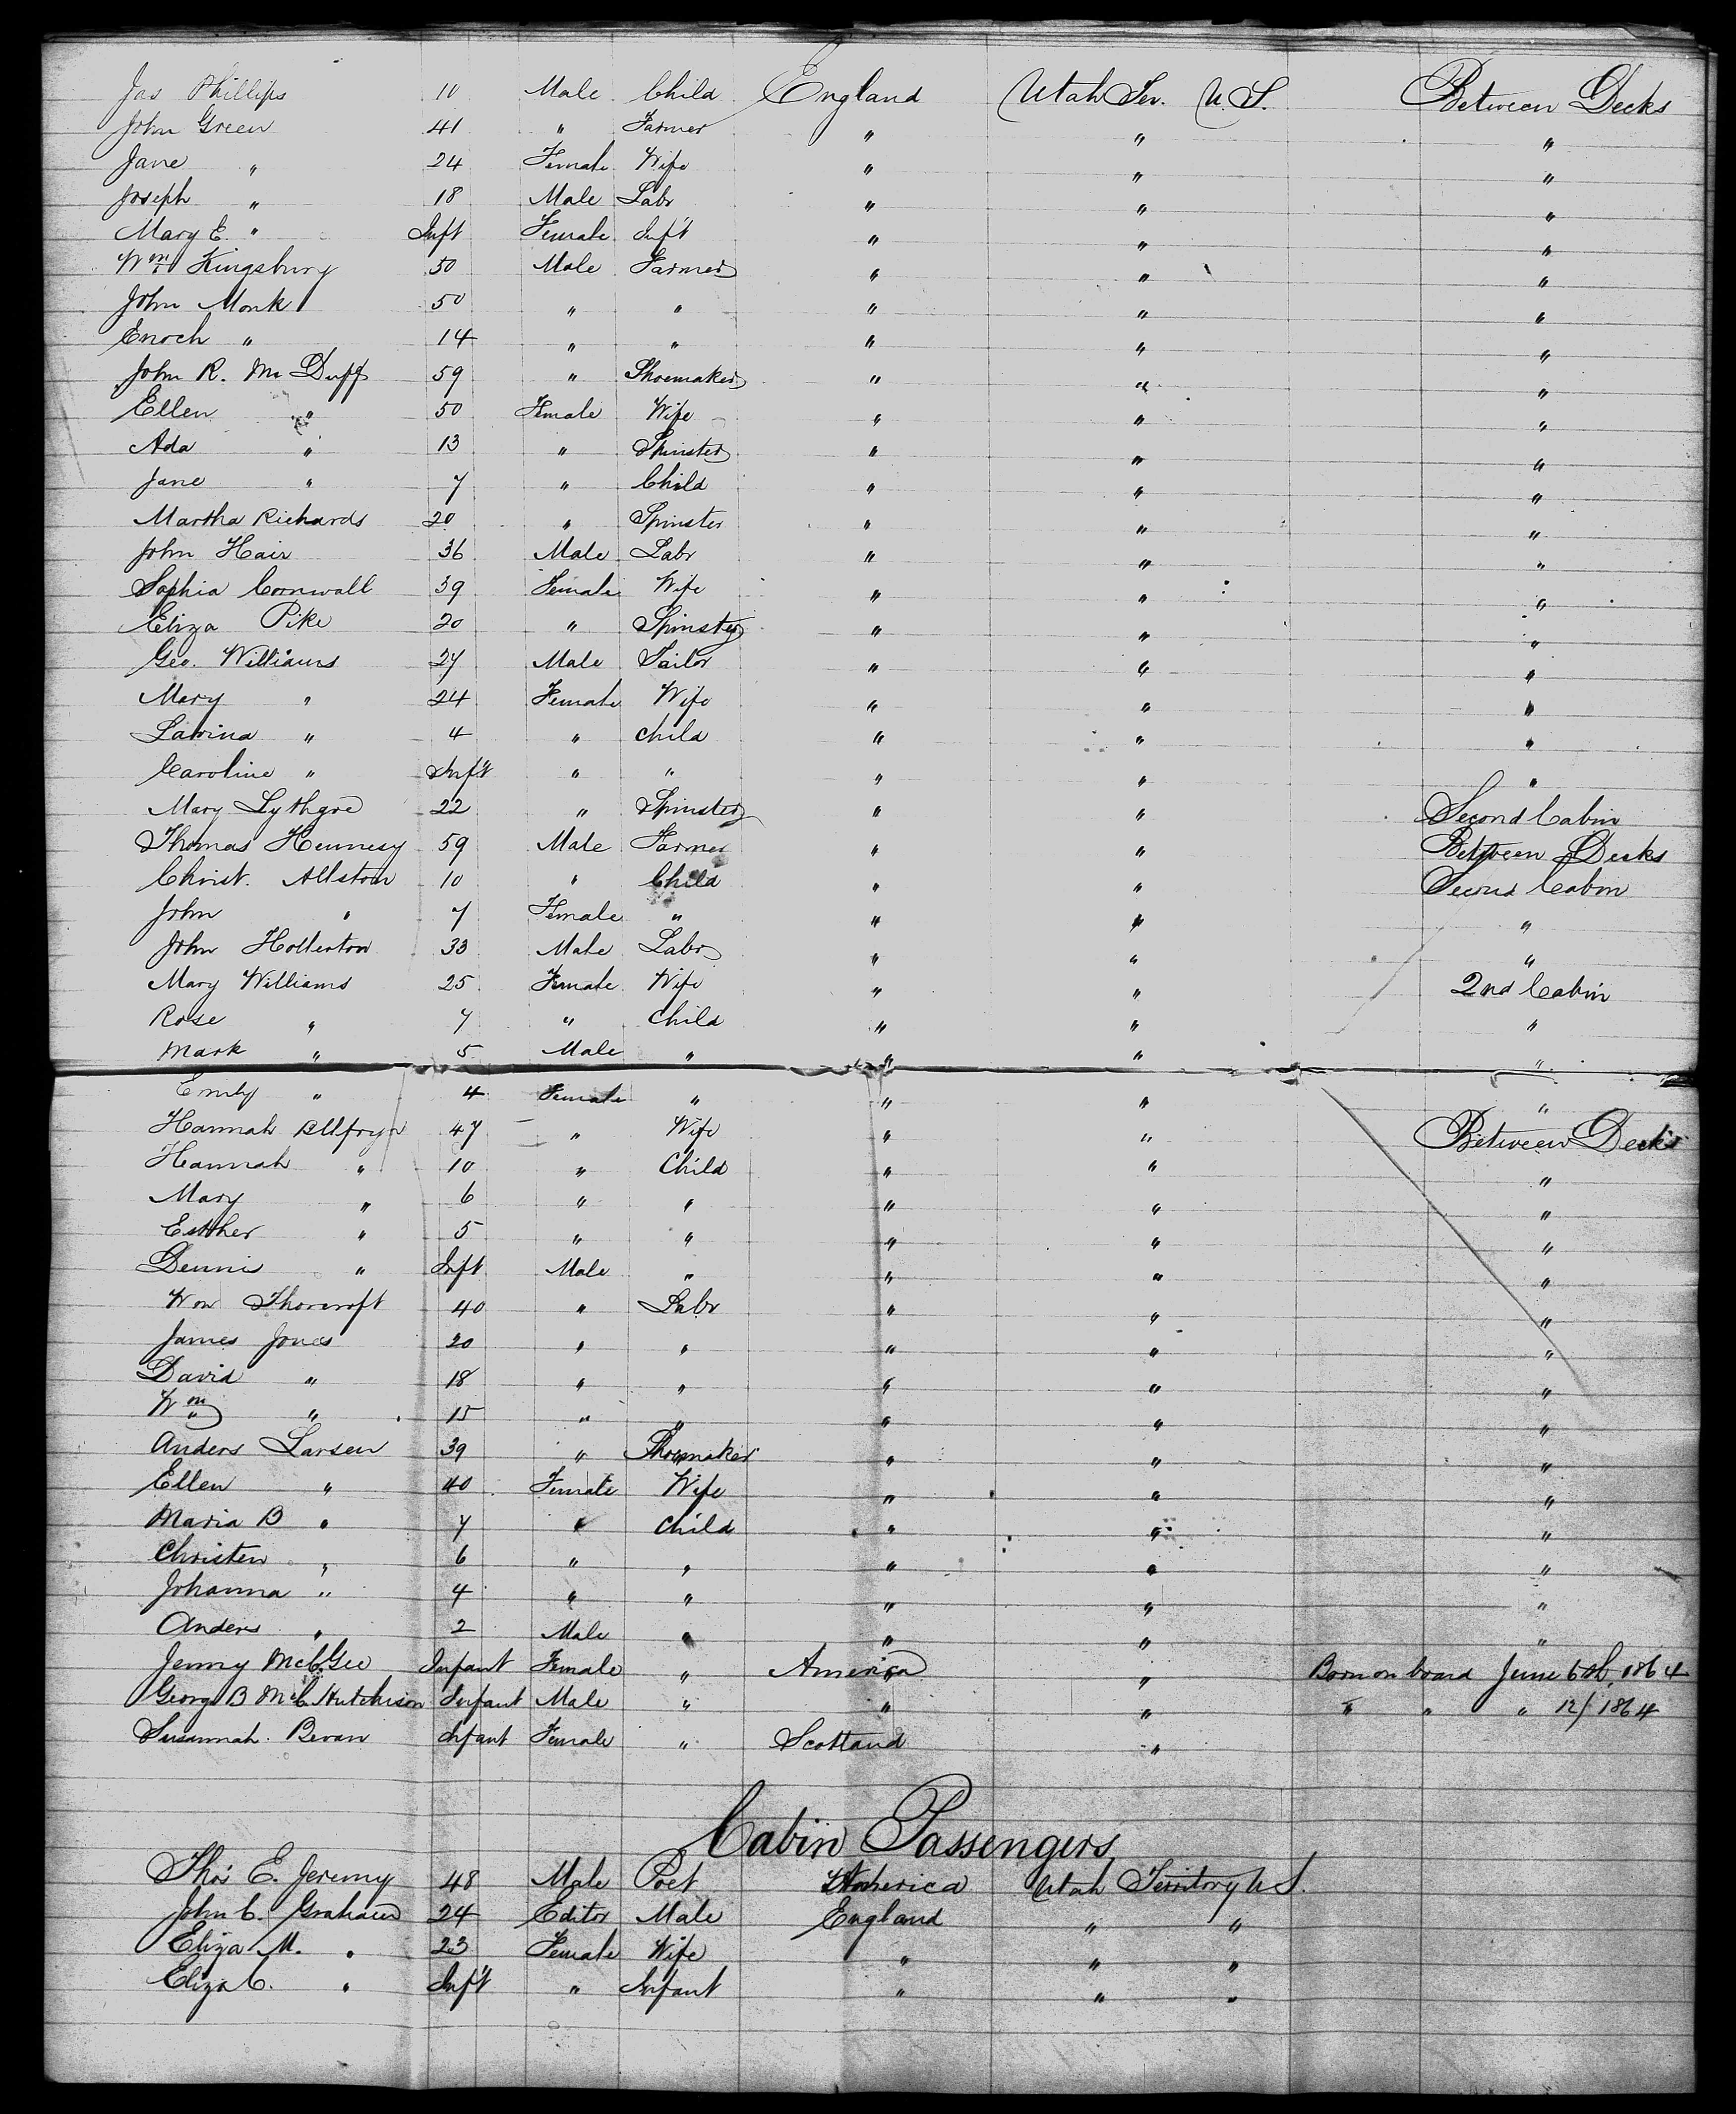 Jas Phillips 10 Male Child England Utah Ter. U.S. Between Decks
John Green 41 " Farmer " " "
Jane " 24 Female Wife " " "
Joseph " 18 Male Labr " " "
Mary E. " Inft Female Inf't " " "
Wm Kingsbury 50 Male Farmer " " "
John Monk 50 " " " " "
Enoch " 14 " " " " "
John R. Mc Duff 59 " Shoemaker " " "
Ellen " 50 Female Wife " " "
Ada " 13 " Spinster " " "
Jane " 7 " Child " " "
Martha Richards 20 " Spinster " " "
John Hair 36 Male Labr " " "
Sophia Cornwall 39 Female Wife " " "
Eliza Pike 20 " Spinster " " "
Geo. Williams 27 Male Tailor " " "
Mary " 24 Female Wife " " "
Lavina " 4 " Child " " "
Caroline " Inf't " " " " "
Mary Lythgoe 22 " Spinster " " Second Cabin
Thomas Hennesy 59 Male Farmer " " Between Decks
Christ. Allston 10 " Child " " Second Cabin
John " 7 Female " " " "
John Hollerton 33 Male Labr " " "
Mary Williams 25 Female Wife " " 2nd Cabin
Rose " 7 " Child " " "
Mark " 5 Male " " " "
Emily " 4 Female " " " "
Hannah 47 " Wife " " Between Decks
Hannah " 10 " Child " " "
Mary " 6 " " " " "
Esther " 5 " " " " "
Dennis " Inft Male " " " "
Wm Thorcroft 40 " Labr " " "
James Jones 20 " " " " "
David " 18 " " " " "
Wm " 15 " " " " "
Anders Larsen 39 " Shoemaker " " "
Ellen " 40 Female Wife " " "
Maria B " 7 " Child " " "
Christen " 6 " " " " "
Johanna " 4 " " " " "
Anders " 2 Male " " " "
Jenny McC.Gee Infant Female " America " Born on board June 6th, 1864
George B McC. Hutchison Infant Male " " " " " " 12/1864
Susannah. Bevan Infant Female " Scotland "
Cabin Passengers
Thos E. Jeremy 48 Male Poet America Utah Territory U.S.
John C. Graham 24 Editor Male England " "
Eliza M. " 23 Female Wife " " "
Eliza C. " Inf't " Infant " " "